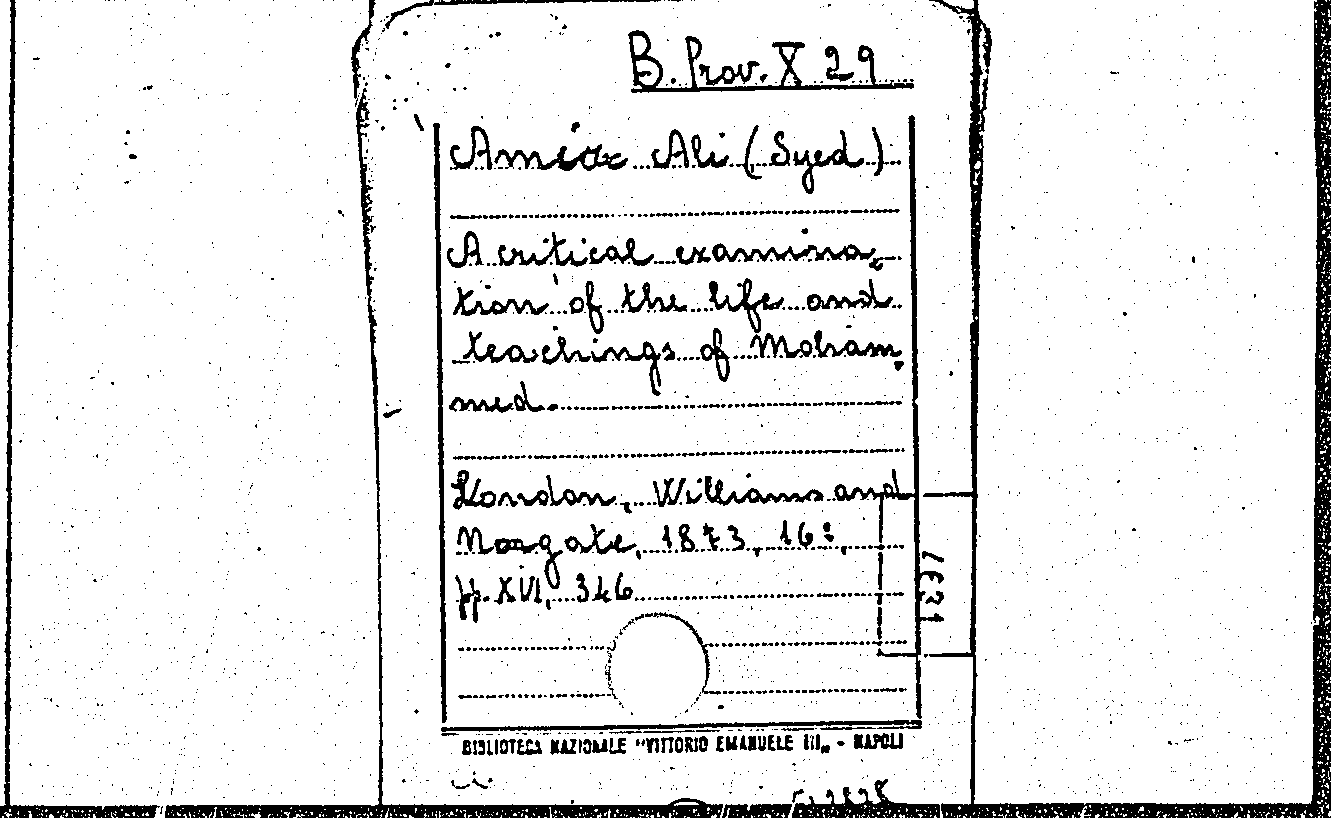 B. Prov. X 29
Amir Ali (Syed)
A critical examina-
tion of the life and
teachings of Moham-
med.
London, Williams and
Norgate, 1873, 16º,
pp. XVI, 346
BIBLIOTECA NAZIONALE "VITTORIO EMANUELE III„ - NAPOLI